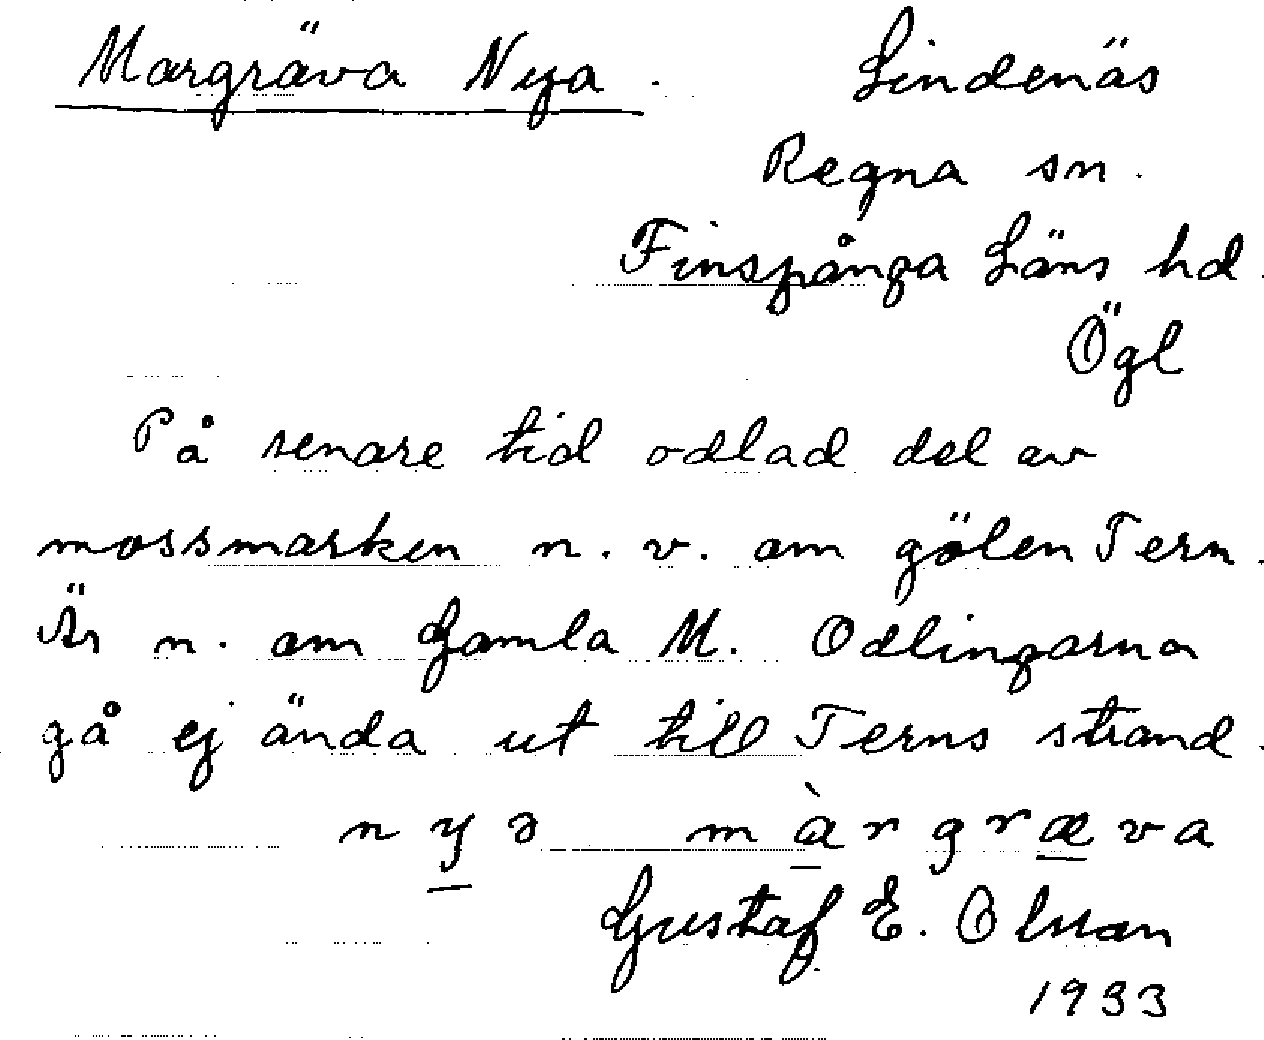 Margräva Nya. Lindenäs
Regna sn.
Finspånga Läns hd.
Ögl
På senare tid odlad del av
mossmarken n.v. om gölen Tern.
Är n. om Gamla M. Odlingarna
gå ej ända ut till Terns strand.
nyə màrgræva
Gustaf E. Olsson
1933